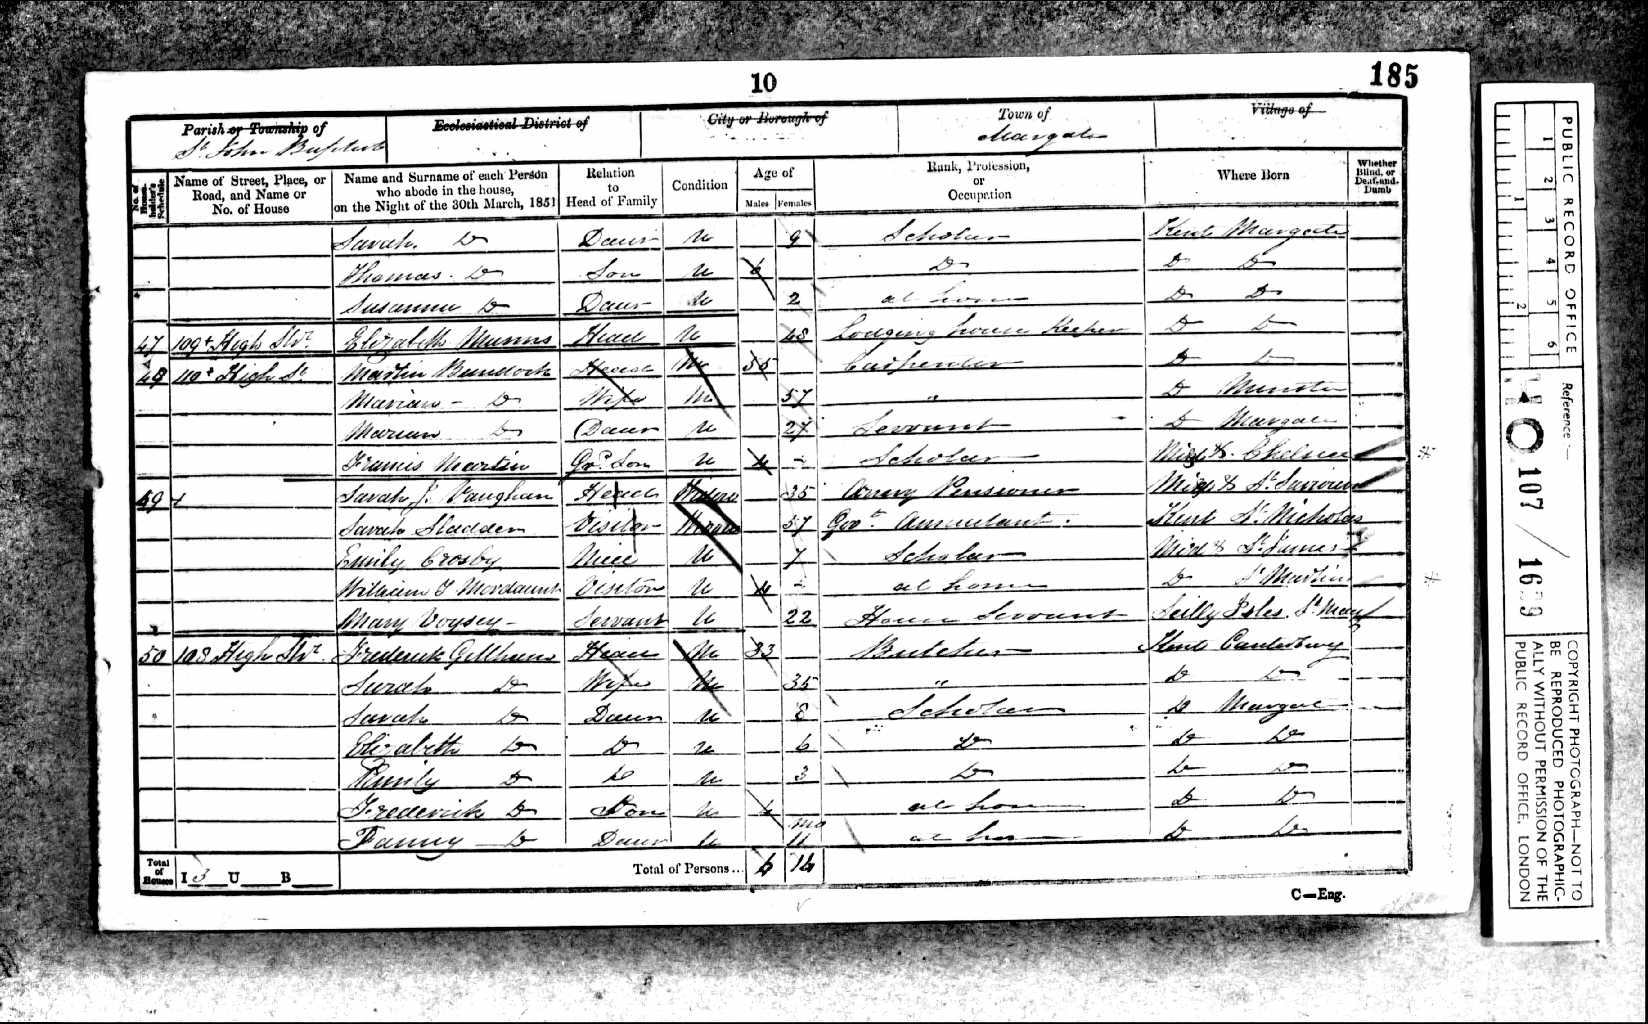 10
185
Parish or Township of
Ecclesiastical District of
City or Borough of
Town of
Village of
St John
Margate
No. of House-holder's Schedule
Name of Street, Place, or Road, and Name or No. of House
Name and Surname of each Person who abode in the house, on the Night of the 30th March, 1851
Relation to Head of Family
Condition
Age of
Males
Females
Rank, Profession, or Occupation
Where Born
Whether Blind, or Deaf-and-Dumb
Sarah Do Daur U 9 Scholar Kent Margate
Thomas Do Son U 6 Do Do Do
Susanna Do Daur U 2 at home Do Do
47 109 High Str Elizabeth Munns Head U 48 Lodging house Keeper Do Do
48 110 High St Martin Bundock Head M 55 Carpenter Do Do
Marian Do Wife M 57 " Do Minster
Marian Do Daur U 27 Servant Do Margate
Francis Martin Gr. Son U 4 Scholar Midx Chelsea
49 Sarah J. Vaughan Head Widow 35 Army Pensioner Midx St
Sarah Sladden Visitor 57 Govt Annuitant Kent St Nicholas
Emily Crosby Niece U 7 Scholar Midx St James
William J Mordaunt Visitor U 4 at home Do St Martin
Mary Voysey Servant U 22 House Servant Scilly Isles St Mary
50 108 High Str Frederick Head M 33 Butcher Kent Canterbury
Sarah Do Wife M 35 " Do Do
Sarah Do Daur U 8 Scholar Do Margate
Elizabeth Do Do U 6 Do Do Do
Emily Do Do U 3 Do Do Do
Frederick Do Son U at home Do Do
Fanny Do Daur U 11 mo at home Do Do
Total of Houses
I 3 U B
Total of Persons... 6 14
C—Eng.
PUBLIC RECORD OFFICE
1 2 3 4 5 6
1 2
Reference:—
HO 107 / 1629
COPYRIGHT PHOTOGRAPH—NOT TO BE REPRODUCED PHOTOGRAPHIC-ALLY WITHOUT PERMISSION OF THE PUBLIC RECORD OFFICE, LONDON